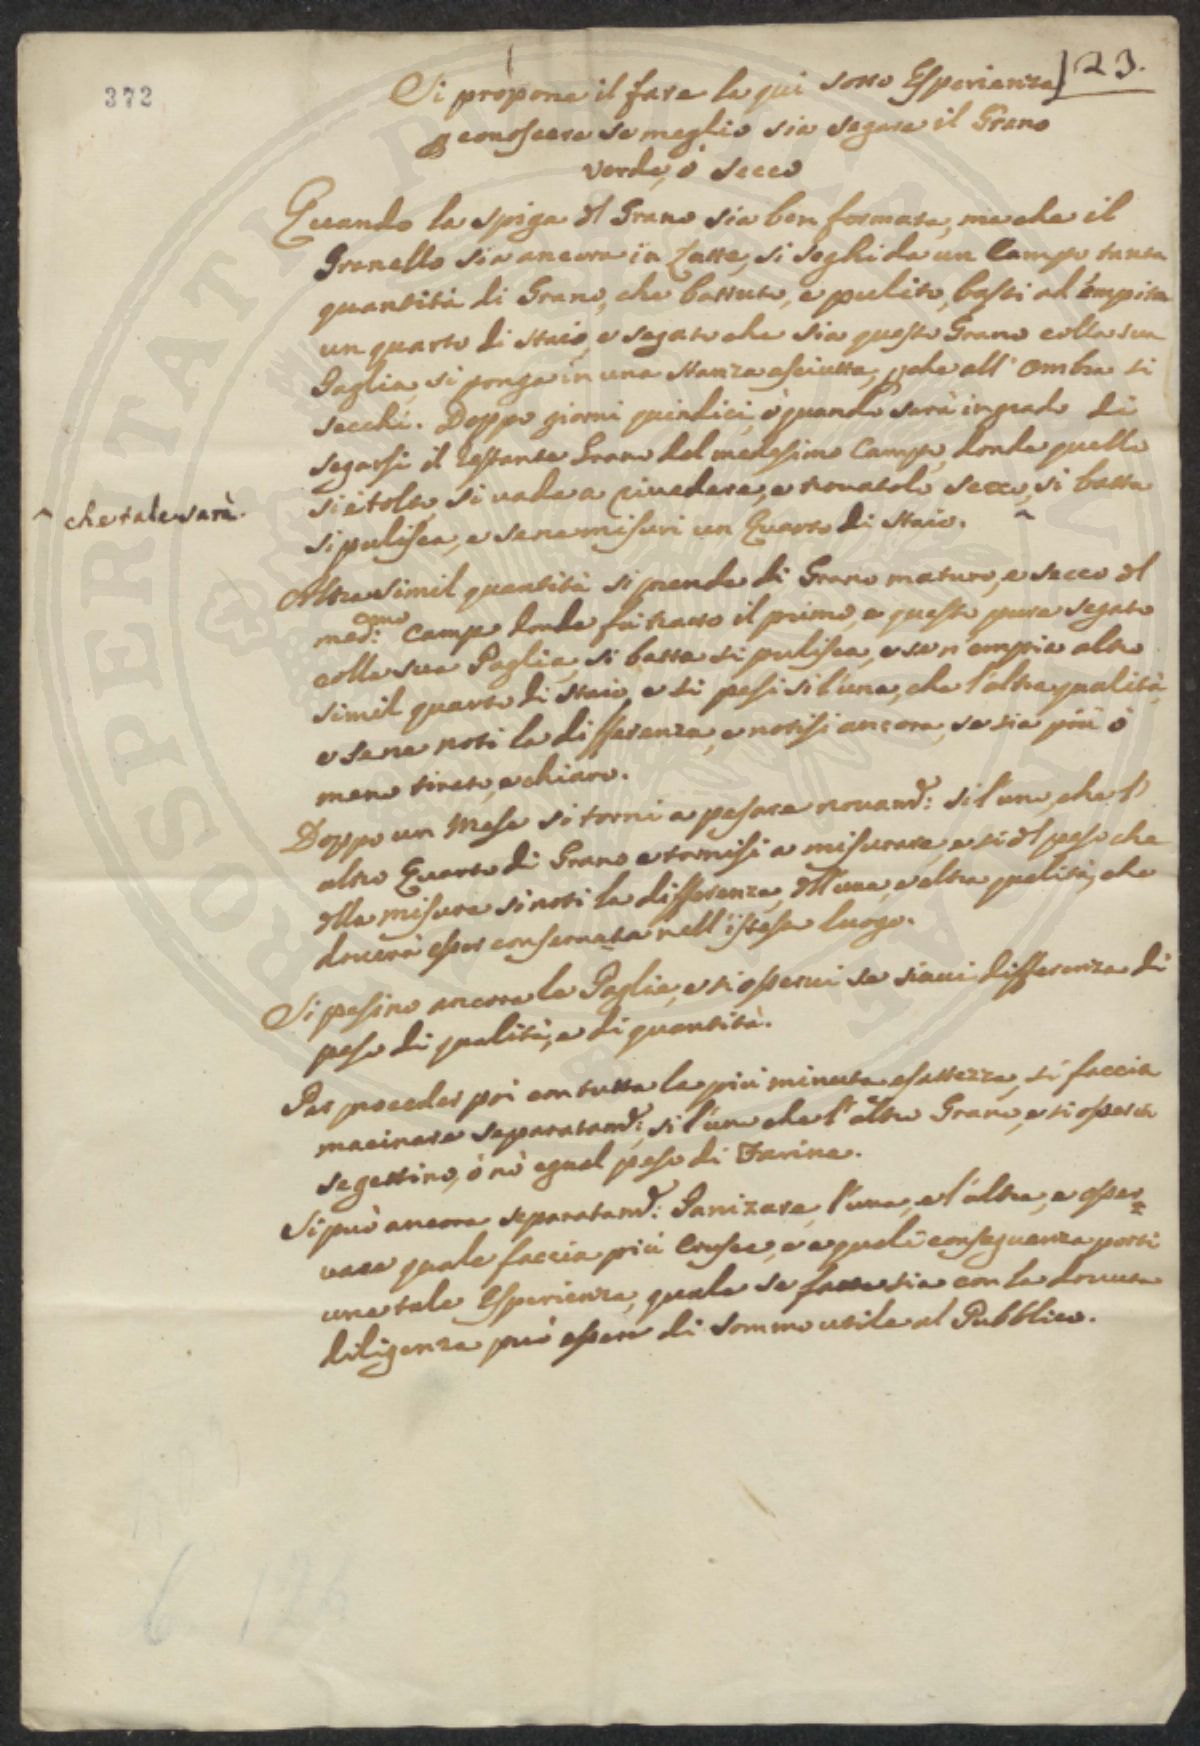 372
123.
Si propone il fare la qui sotto Esperienza
p conoscere se meglio sia segare il Grano
verde, ò secco
Quando la spiga dl Grano sia ben formata, mà che il
Granello sia ancora in Latte, si seghi da un Campo tanta
quantità di Grano, che battuto, e pulito, basti ad empire
un quarto di staio, e segato che sia questo Grano colla sua
Paglia, si ponga in una stanza asciutta, pche all' ombra si
secchi. Doppo giorni quindici, ò quando sarà in grado di
segarsi il restante Grano del medesimo Campo, donde quello
si è tolto, si vada a rivedere, e trovatolo secco, si batta
^ che tale sarà.
si pulisca, e se ne misuri un Quarto di staio.
Altra simil quantità si prenda di Grano maturo, e secco dl
med:mo Campo donde fù tratto il primo, e questo pure segato
colla sua Paglia, si batta si pulisca, e se n'empia altro
simil quarto di staio, e si pesi sì l'una, che l'altra qualità,
e se ne noti la differenza, e notisi ancora, se sia più ò
meno tireto, e chiaro.
Doppo un Mese si torni a pesare novamt: sì l'uno, che l'
altro Quarto di Grano e tornisi a misurare, e sì dl peso che
dlla misura si noti la differenza, dll'una, e altra qualità, che
doverà esser conservata nell'istesso luogo.
Si pesino ancora le Paglie, e si osservi se siavi differenza di
peso di qualità, e di quantità.
Per proceder poi con tutta la più minuta esattezza, si faccia
macinare separatamt: sì l'uno che l'altro Grano, e si osservi
se gettino, ò nò egual peso di Farina.
Si può ancora separatamt: Panizare, l'una, e l'altra, e osser=
vare quale faccia più Crusca, e a quali conseguenza porti
una tale Esperienza, quale se fatta sia con la dovuta
diligenza può essere di sommo utile al Pubblico.
6 126
PROSPERITATI PUBLICAE